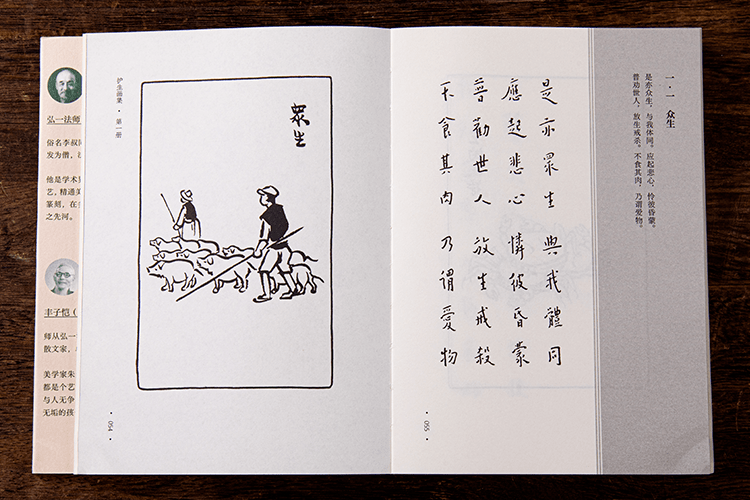 弘一法师
俗名李叔
发为僧,
他是学术
艺,精通
篆刻,在
之先河。
丰子恺(
师从弘一
散文家,
美学家朱
都是个艺
与人无争
无垢的孩
护生画集·第一册
眾生
·054·
一·一 众生
是亦众生,与我体同。应起悲心,怜彼昏蒙。
普劝世人,放生戒杀。不食其肉,乃谓爱物。
是亦眾生與我體同
應起悲心憐彼昏蒙
普勸世人放生戒殺
不食其肉乃謂愛物
·055·